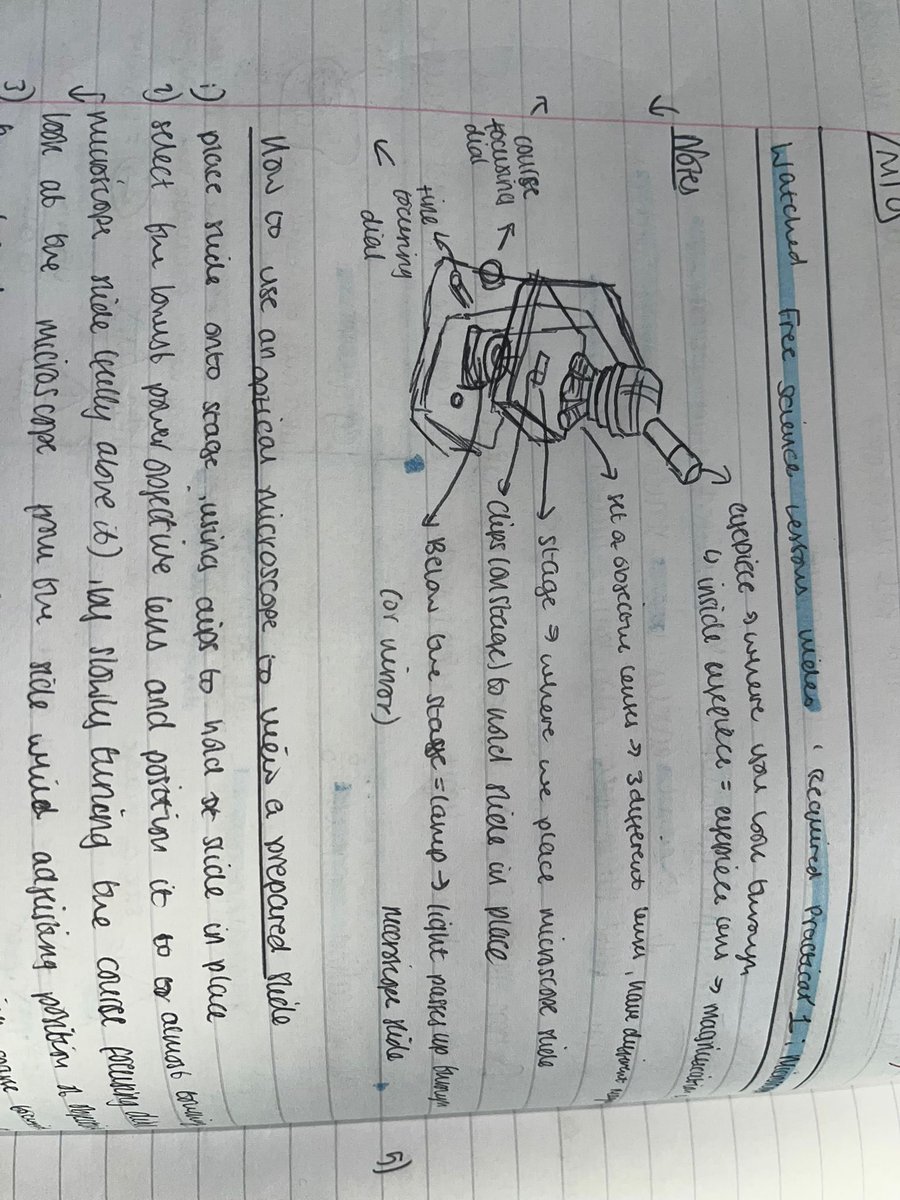 Watched Free science lessons video, Required Practical 1:
Notes
eyepiece → where you look through
↳ inside eyepiece = eyepiece lens →
set of objective lenses → 3 different lenses, have different
stage → where we place microscope slide
clips (on stage) to hold slide in place
Below the stage = lamp → light passes up through
(or mirror) microscope slide
course
focusing
dial
fine
focusing
dial
How to use an optical microscope to view a prepared slide
1) place slide onto stage, using clips to hold slide in place
2) select the lowest power objective lens and position it to almost
microscope slide (really above it), by slowly turning the course focusing
look at the microscope from the side whilst adjusting position of
3)
5)